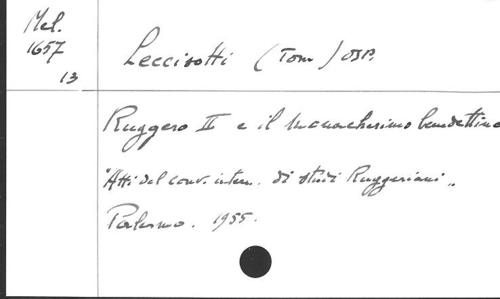 Mel.
1657
13
Leccisotti (Tom) OSB.
Ruggero II e il monachesimo benedettino
"Atti del conv. intern. di studi Ruggeriani"
Palermo. 1955.